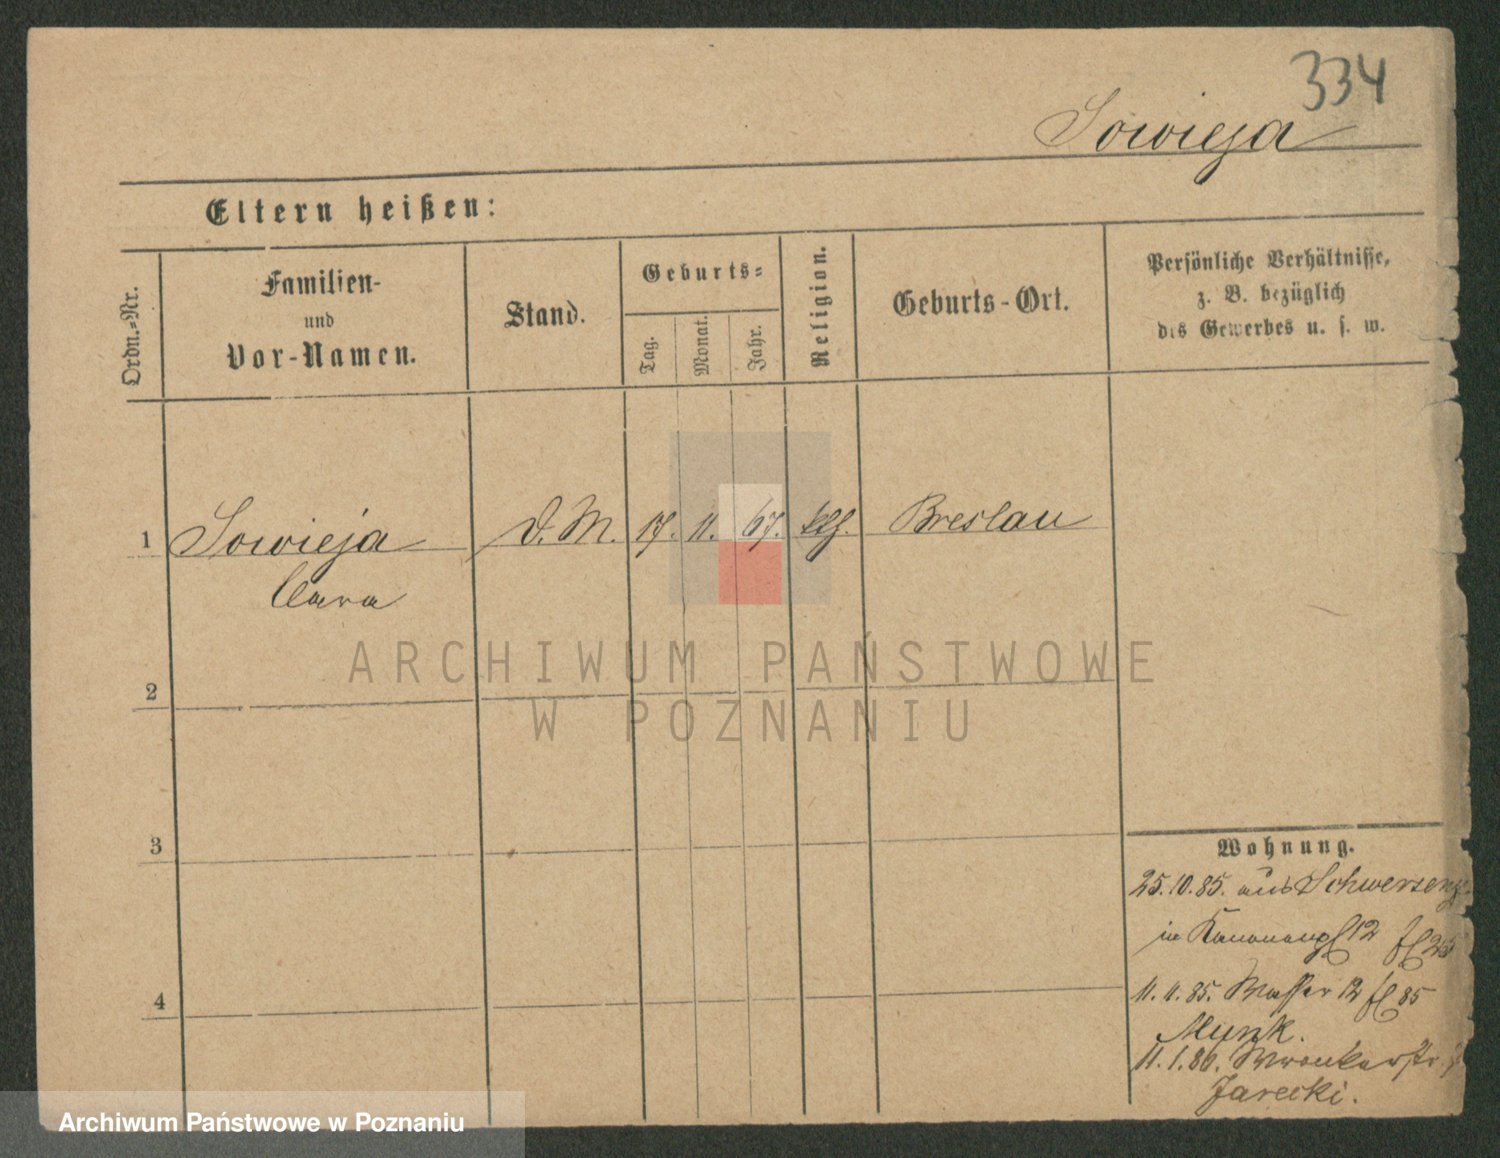 334
Sowieja
Eltern heißen:
Ordn.=Nr.
Familien-
und
Vor-Namen.
Stand.
Geburts=
Tag.
Monat.
Jahr.
Religion.
Geburts-Ort.
Persönliche Verhältnisse,
z. B. bezüglich
des Gewerbes u. s. w.
1 Sowieja D. M. 17. 11. 67. Breslau
Clara
2
3
4
Wohnung.
25.10.85. aus Schwersenz
in Kanonenpl 12
11.11.85. Wasser 12 85
Munk.
11.1.86. Wronkerstr.
Jarecki.
ARCHIWUM PAŃSTWOWE
W POZNANIU
Archiwum Państwowe w Poznaniu